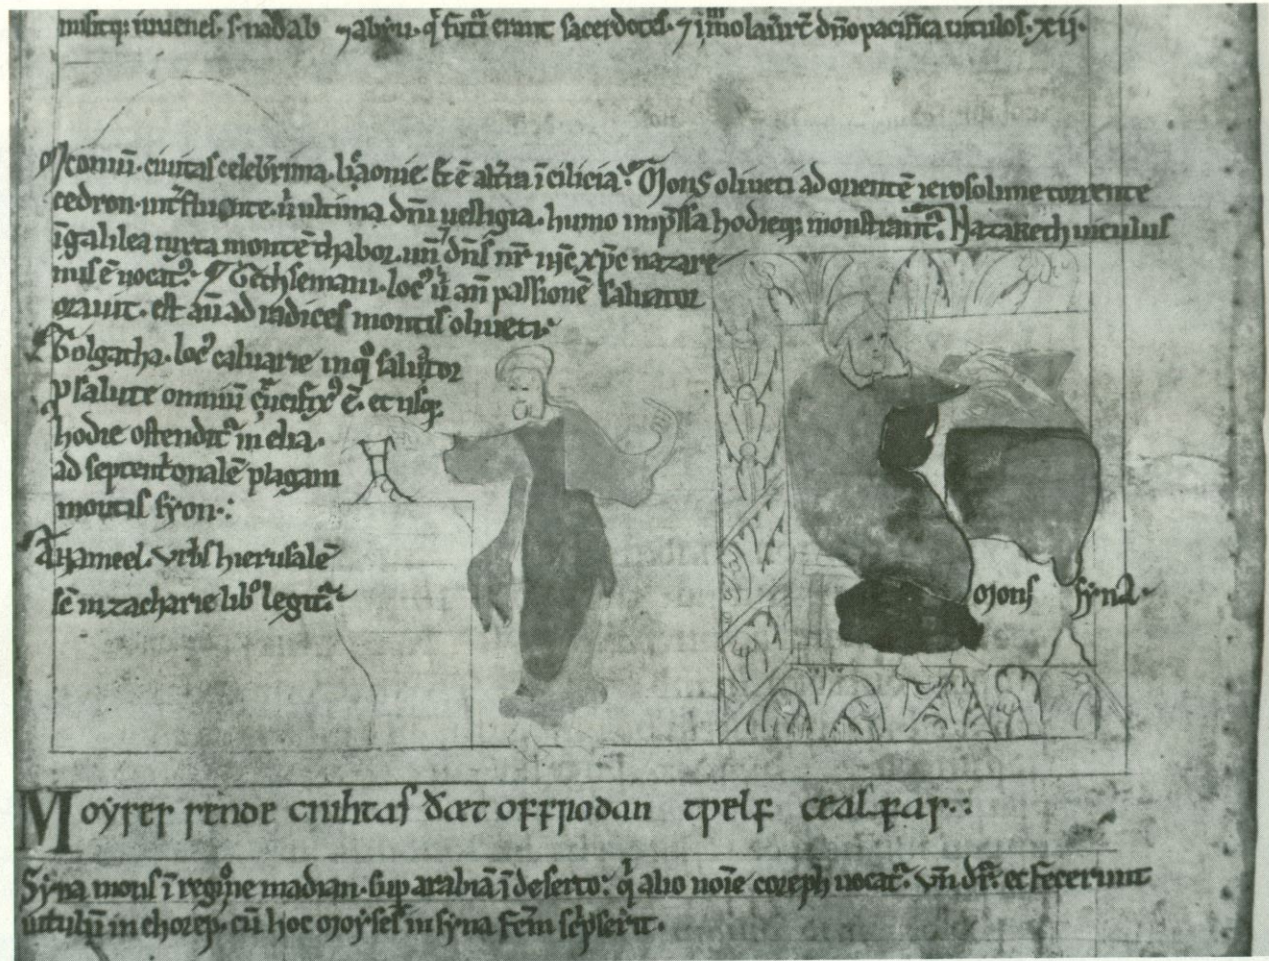 misitq; iuuenes .s. nadab ⁊ abyu. q̇ futi erunt sacerdotes. ⁊ imolaur̄t dn̄o pacifica uitulos .xii.
Jconiū. ciuitas celeb̄rima. lẏaonie. & ē alt̄a ī cilicia. Mons oliueti ad orientē ierosolime torrente
cedron. int̄fluente. ū ultima dn̄i uestigia. humo imp̄ssa hodieq; monstrant̄. Nazareth uiculus
ī galilea iuxta montē thabor. un̄ dn̄s nr̄ ih̄c xp̄c nazare
nus ē uocat᾽. Gethsemani. loc᾽ ū an̄ passionē saluator
orauit. est aū ad radices montis oliueti.
Golgatha. loc᾽ caluarie in qͦ saluator
ꝑ salute omniū c̄ucifix᾽ ē. et usq;
hodie ostendit᾽ in elia.
ad septent̄onalē plagam
montis sẏon.:
Anameel. urbs hierusalē
sē in zacharie libͦ legit᾽.
mons sẏna.
Moẏses sende cnihtas ðæt offrodan twelf cealfas.:
Sẏna mons ī regiͦne madian. suꝑ arabiā ī deserto. q̇ alio noīe coreph uocat᾽. Vn̄ dr̄. et fecerunt
uitulū in chorep. cū hoc moẏses in sẏna